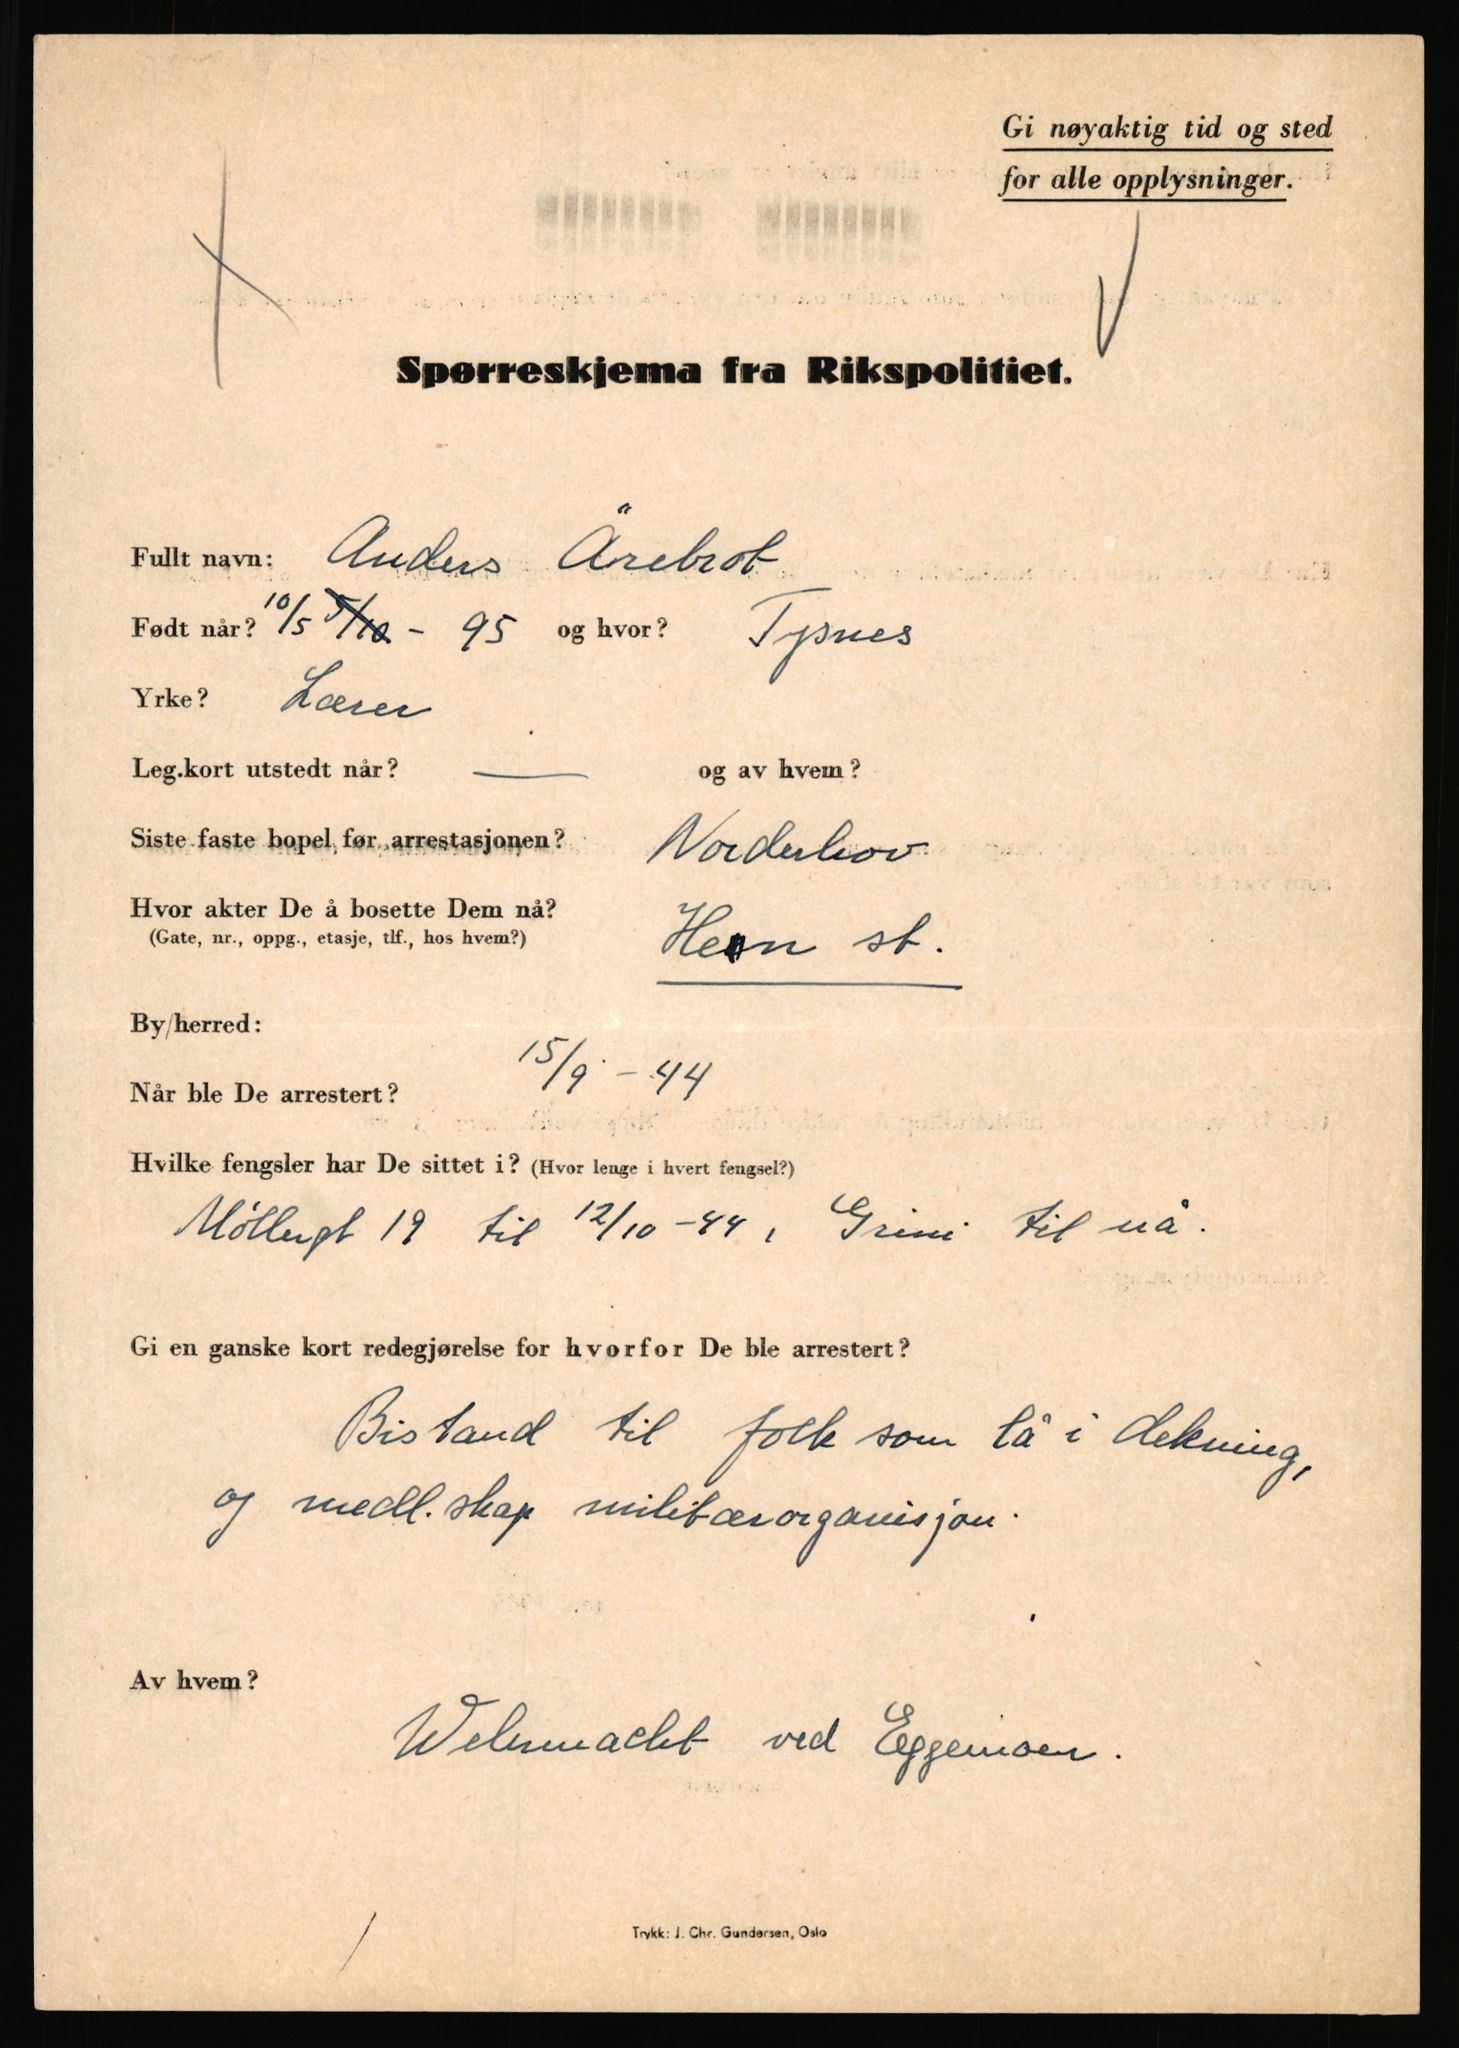 Gi nøyaktig tid og sted
for alle opplysninger.
Spørreskjema fra Rikspolitiet.
Fullt navn: Anders Ärebrot
Født når? 10/5 5/10 - 95 og hvor? Tysnes
Yrke? Lærer
Leg.kort utstedt når? — og av hvem?
Siste faste bopel før arrestasjonen? Norderhov
Hvor akter De å bosette Dem nå? Hen st.
(Gate, nr., oppg., etasje, tlf., hos hvem?)
By/herred:
Når ble De arrestert? 15/9 - 44
Hvilke fengsler har De sittet i? (Hvor lenge i hvert fengsel?)
Møllergt 19 til 12/10 - 44, Grini til nå.
Gi en ganske kort redegjørelse for hvorfor De ble arrestert?
Bistand til folk som lå i dekning,
og medl.skap militærorganisjon.
Av hvem?
Wehrmacht ved Eggemoen.
Trykk: J. Chr. Gundersen, Oslo